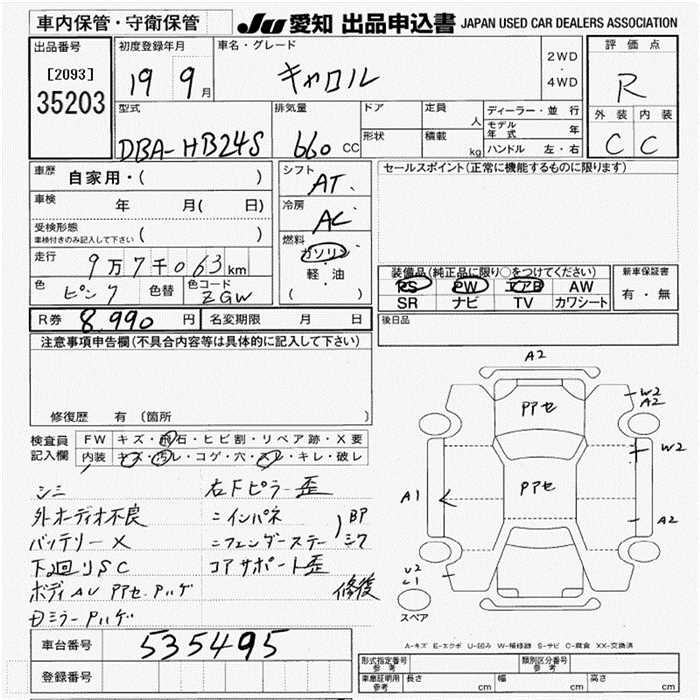 車内保管・守衛保管
JU 愛知 出品申込書 JAPAN USED CAR DEALERS ASSOCIATION
出品番号
[2093]
35203
初度登録年月
19 9月
車名・グレード
キャロル
2WD
・
4WD
評価点
R
外装 内装
C C
型式
DBA-HB24S
排気量
660 CC
ドア
形状
定員 人
積載 kg
ディーラー・並行
モデル年式 年
ハンドル 左・右
車歴 自家用・( )
車検 年 月( 日)
受検形態
車検付きのみ記入して下さい ( )
走行 9万7千063km
色 ピンク 色替 色コード ZGW
シフト AT
冷房 AC
燃料 ガソリン
・
軽・油
( )
セールスポイント(正常に機能するものに限ります)
装備品(純正品に限り○をつけてください)
PS PW エアB AW
SR ナビ TV カワシート
新車保証書
有・無
R券 8,990円 名変期限 月 日
後日品
注意事項申告欄(不具合内容等は具体的に記入して下さい)
修復歴 有 (箇所 )
検査員記入欄
FW キズ・飛石・ヒビ割・リペア跡・X要
内装 キズ・汚レ・コゲ・穴・スレ・キレ・破レ
シミ
外オーディオ不良
バッテリーX
下廻りSC
ボディAU PPアセ Pハゲ
Dミラー Pハゲ
右Fピラー歪
〃インパネ
〃フェンダーステー
コアサポート歪
修復
A2
PPアセ
W2
A2
W2
PPアセ
A1
A2
U2
C1
スペア
A-キズ E-エクボ U-凹み W-補修跡 S-サビ C-腐食 XX-交換済
車台番号 535495
登録番号
形式指定番号 参考
類別区分番号 参考
車庫証明用 参考 長さ cm 幅 cm 高さ cm